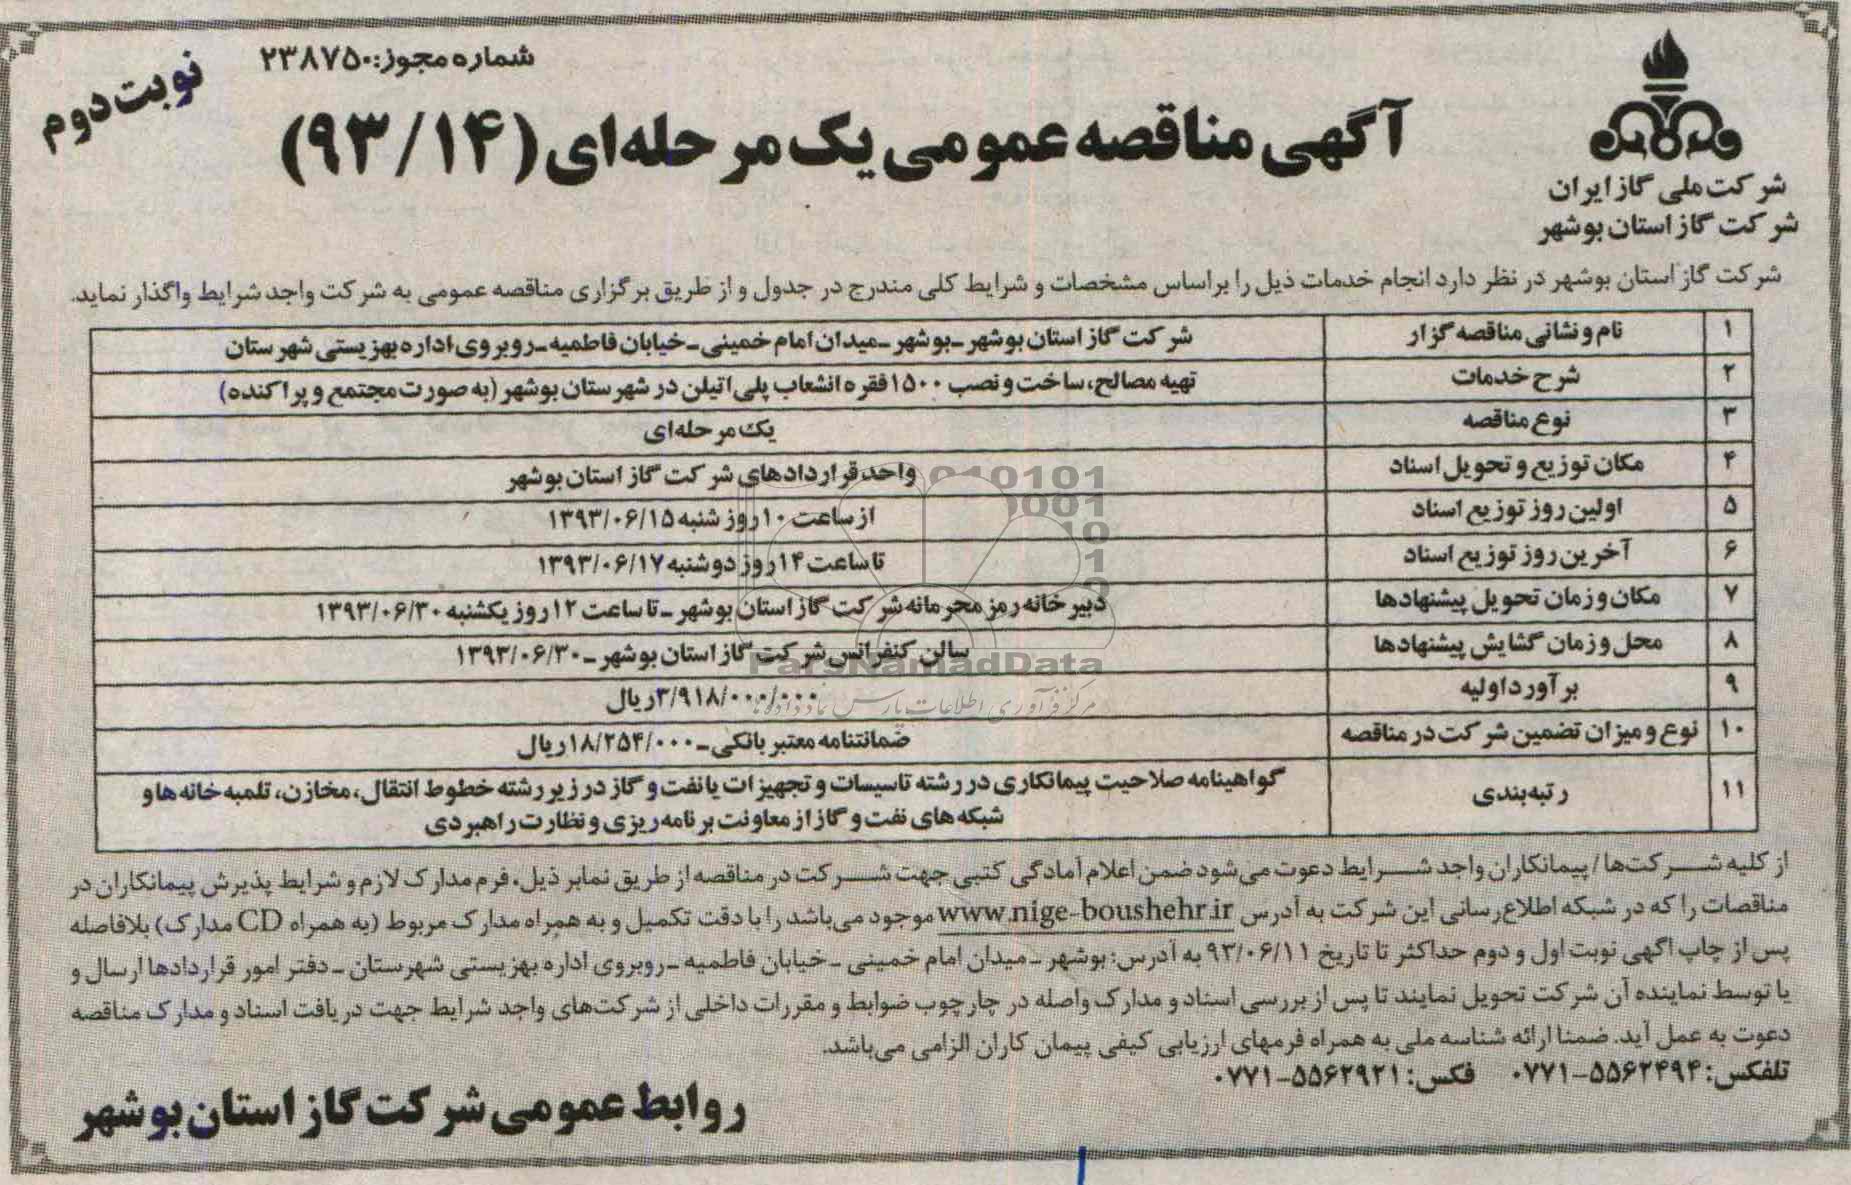 شماره مجوز: ۲۳۸۷۵۰
نوبت دوم
آگهی مناقصه عمومی یک مرحله‌ای (۹۳/۱۴)
شرکت ملی گاز ایران
شرکت گاز استان بوشهر
شرکت گاز استان بوشهر در نظر دارد انجام خدمات ذیل را براساس مشخصات و شرایط کلی مندرج در جدول و از طریق برگزاری مناقصه عمومی به شرکت واجد شرایط واگذار نماید.
۱ نام و نشانی مناقصه گزار شرکت گاز استان بوشهر ـ بوشهر ـ میدان امام خمینی ـ خیابان فاطمیه ـ روبروی اداره بهزیستی شهرستان
۲ شرح خدمات تهیه مصالح، ساخت و نصب ۱۵۰۰ فقره انشعاب پلی اتیلن در شهرستان بوشهر (به صورت مجتمع و پراکنده)
۳ نوع مناقصه یک مرحله‌ای
۴ مکان توزیع و تحویل اسناد واحد قراردادهای شرکت گاز استان بوشهر
۵ اولین روز توزیع اسناد از ساعت ۱۰ روز شنبه ۱۳۹۳/۰۶/۱۵
۶ آخرین روز توزیع اسناد تا ساعت ۱۴ روز دوشنبه ۱۳۹۳/۰۶/۱۷
۷ مکان و زمان تحویل پیشنهادها دبیرخانه رمز محرمانه شرکت گاز استان بوشهر ـ تا ساعت ۱۲ روز یکشنبه ۱۳۹۳/۰۶/۳۰
۸ محل و زمان گشایش پیشنهادها سالن کنفرانس شرکت گاز استان بوشهر ـ ۱۳۹۳/۰۶/۳۰
۹ برآورد اولیه ۳/۹۱۸/۰۰۰/۰۰۰ ریال
۱۰ نوع و میزان تضمین شرکت در مناقصه ضمانتنامه معتبر بانکی ـ ۱۸/۲۵۴/۰۰۰ ریال
۱۱ رتبه بندی گواهینامه صلاحیت پیمانکاری در رشته تاسیسات و تجهیزات یا نفت و گاز در زیر رشته خطوط انتقال، مخازن، تلمبه خانه ها و
شبکه های نفت و گاز از معاونت برنامه ریزی و نظارت راهبردی
010101
0001
10
1
0
ParsNamadData
مرکز فرآوری اطلاعات پارس نماد داده‌ها
از کلیه شرکت‌ها / پیمانکاران واجد شرایط دعوت می‌شود ضمن اعلام آمادگی کتبی جهت شرکت در مناقصه از طریق نمابر ذیل، فرم مدارک لازم و شرایط پذیرش پیمانکاران در
مناقصات را که در شبکه اطلاع‌رسانی این شرکت به آدرس www.nige-boushehr.ir موجود می‌باشد را با دقت تکمیل و به همراه مدارک مربوط (به همراه CD مدارک) بلافاصله
پس از چاپ آگهی نوبت اول و دوم حداکثر تا تاریخ ۹۳/۰۶/۱۱ به آدرس: بوشهر ـ میدان امام خمینی ـ خیابان فاطمیه ـ روبروی اداره بهزیستی شهرستان ـ دفتر امور قراردادها ارسال و
یا توسط نماینده آن شرکت تحویل نمایند تا پس از بررسی اسناد و مدارک واصله در چارچوب ضوابط و مقررات داخلی از شرکت‌های واجد شرایط جهت دریافت اسناد و مدارک مناقصه
دعوت به عمل آید. ضمنا ارائه شناسه ملی به همراه فرمهای ارزیابی کیفی پیمان کاران الزامی می‌باشد.
تلفکس: ۵۵۶۲۴۹۴-۰۷۷۱ فکس: ۵۵۶۲۹۲۱-۰۷۷۱
روابط عمومی شرکت گاز استان بوشهر